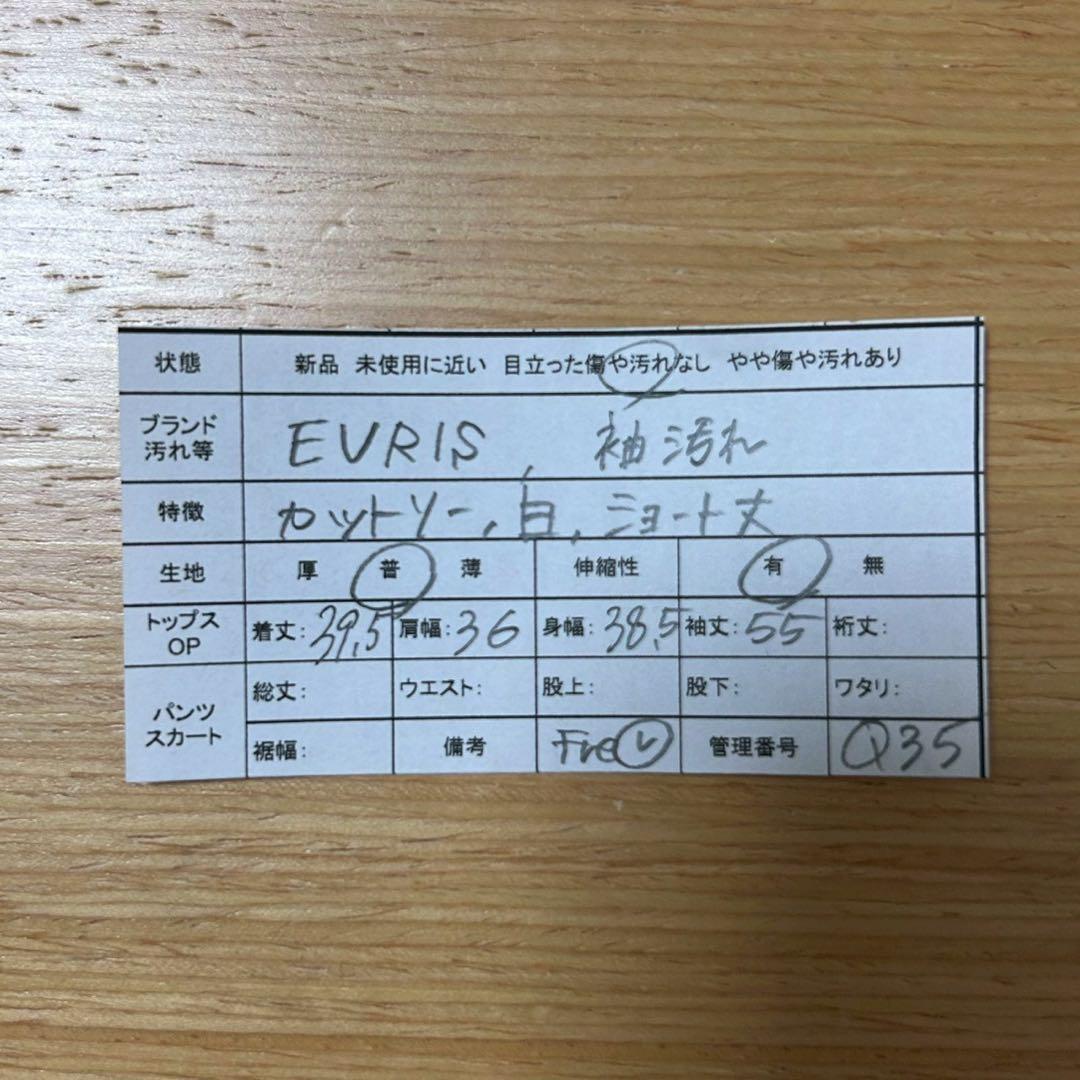 状態 新品 未使用に近い 目立った傷や汚れなし やや傷や汚れあり
ブランド
汚れ等 EVRIS 袖汚れ
特徴 カットソー,白,ショート丈
生地 厚 普 薄 伸縮性 有 無
トップス
OP 着丈:39.5 肩幅:36 身幅:38.5 袖丈:55 裄丈:
パンツ
スカート 総丈: ウエスト: 股上: 股下: ワタリ:
裾幅: 備考 Fre レ 管理番号 Q35